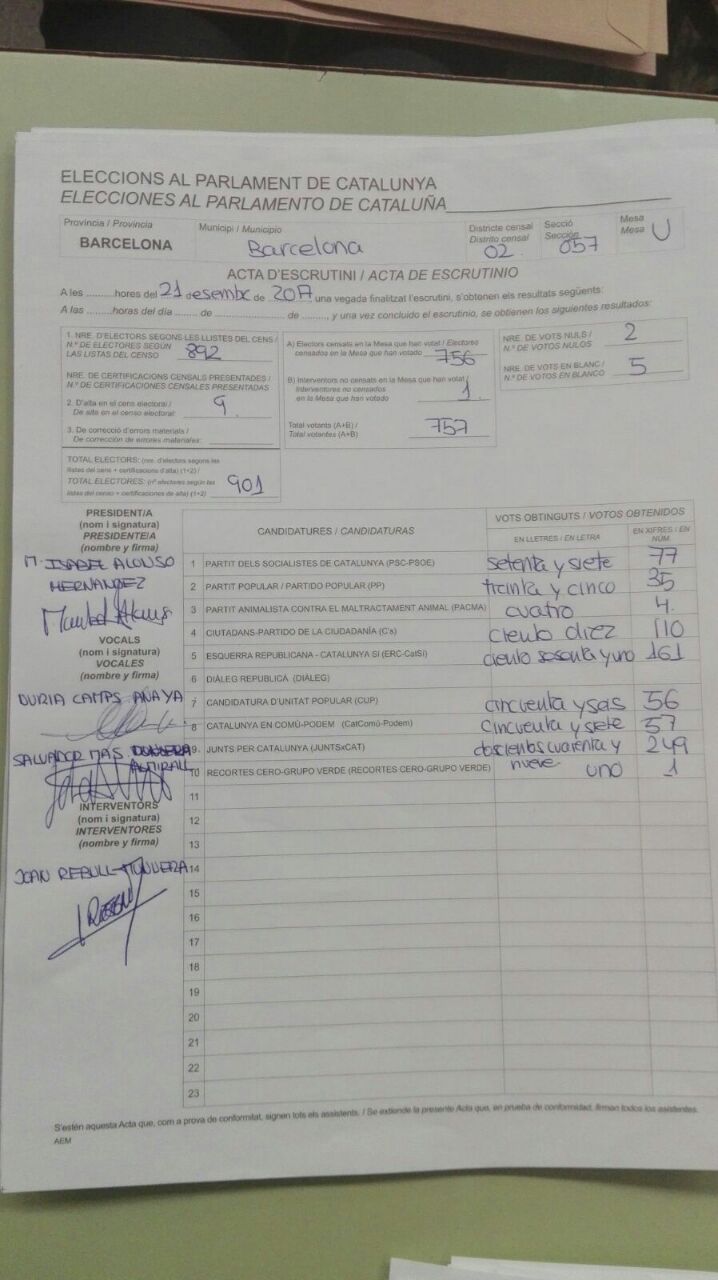 ELECCIONS AL PARLAMENT DE CATALUNYA
ELECCIONES AL PARLAMENTO DE CATALUÑA
Província / Provincia
BARCELONA
Municipi / Municipio
Barcelona
Districte censal
Distrito censal
02
Secció
Sección
057
Mesa
Mesa
U
ACTA D'ESCRUTINI / ACTA DE ESCRUTINIO
A les ..........hores del 21 desembre de 2017 una vegada finalitzat l'escrutini, s'obtenen els resultats següents:
A las ..........horas del día ........... de ........................ de .........., y una vez concluido el escrutinio, se obtienen los siguientes resultados:
1. NRE. D'ELECTORS SEGONS LES LLISTES DEL CENS /
N.º DE ELECTORES SEGÚN
LAS LISTAS DEL CENSO 892
NRE. DE CERTIFICACIONS CENSALS PRESENTADES /
N.º DE CERTIFICACIONES CENSALES PRESENTADAS
2. D'alta en el cens electoral /
De alta en el censo electoral: 9.
3. De correcció d'errors materials /
De corrección de errores materiales:
TOTAL ELECTORS: (nre. d'electors segons les
llistes del cens + certificacions d'alta) (1+2) /
TOTAL ELECTORES: (nº electores según las
listas del censo + certificaciones de alta) (1+2) 901
A) Electors censats en la Mesa que han votat / Electores
censados en la Mesa que han votado 756
B) Interventors no censats en la Mesa que han votat /
Interventores no censados
en la Mesa que han votado 1.
Total votants (A+B) /
Total votantes (A+B) 757
NRE. DE VOTS NULS /
N.º DE VOTOS NULOS 2
NRE. DE VOTS EN BLANC /
N.º DE VOTOS EN BLANCO 5
PRESIDENT/A
(nom i signatura)
PRESIDENTE/A
(nombre y firma)
M. ISABEL ALONSO
HERNANDEZ
VOCALS
(nom i signatura)
VOCALES
(nombre y firma)
NURIA CAMPS ANAYA
SALVADOR MAS
ALMIRALL
INTERVENTORS
(nom i signatura)
INTERVENTORES
(nombre y firma)
JOAN REBULL
CANDIDATURES / CANDIDATURAS
VOTS OBTINGUTS / VOTOS OBTENIDOS
EN LLETRES / EN LETRA
EN XIFRES / EN NÚM.
1 PARTIT DELS SOCIALISTES DE CATALUNYA (PSC-PSOE) setenta y siete 77
2 PARTIT POPULAR / PARTIDO POPULAR (PP) treinta y cinco 35
3 PARTIT ANIMALISTA CONTRA EL MALTRACTAMENT ANIMAL (PACMA) cuatro 4.
4 CIUTADANS-PARTIDO DE LA CIUDADANÍA (C's) ciento diez 110
5 ESQUERRA REPUBLICANA - CATALUNYA SÍ (ERC-CatSí) ciento sesenta y uno 161
6 DIÀLEG REPUBLICÀ (DIÀLEG)
7 CANDIDATURA D'UNITAT POPULAR (CUP) cincuenta y seis 56
8 CATALUNYA EN COMÚ-PODEM (CatComú-Podem) cincuenta y siete 57
9. JUNTS PER CATALUNYA (JUNTSxCAT) doscientos cuarenta y nueve 249
10 RECORTES CERO-GRUPO VERDE (RECORTES CERO-GRUPO VERDE) uno 1
11
12
13
14
15
16
17
18
19
20
21
22
23
S'estén aquesta Acta que, com a prova de conformitat, signen tots els assistents. / Se extiende la presente Acta que, en prueba de conformidad, firman todos los asistentes.
AEM